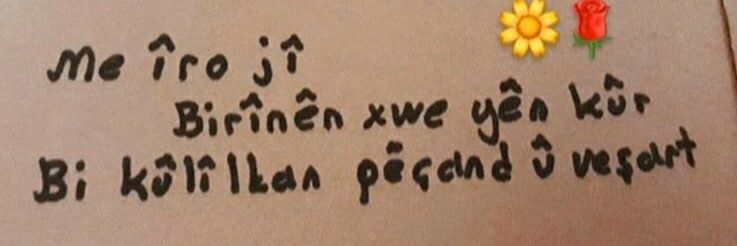 Me îro jî
Birînên xwe yên kûr
Bi kûlîlkan pêçand û veşart